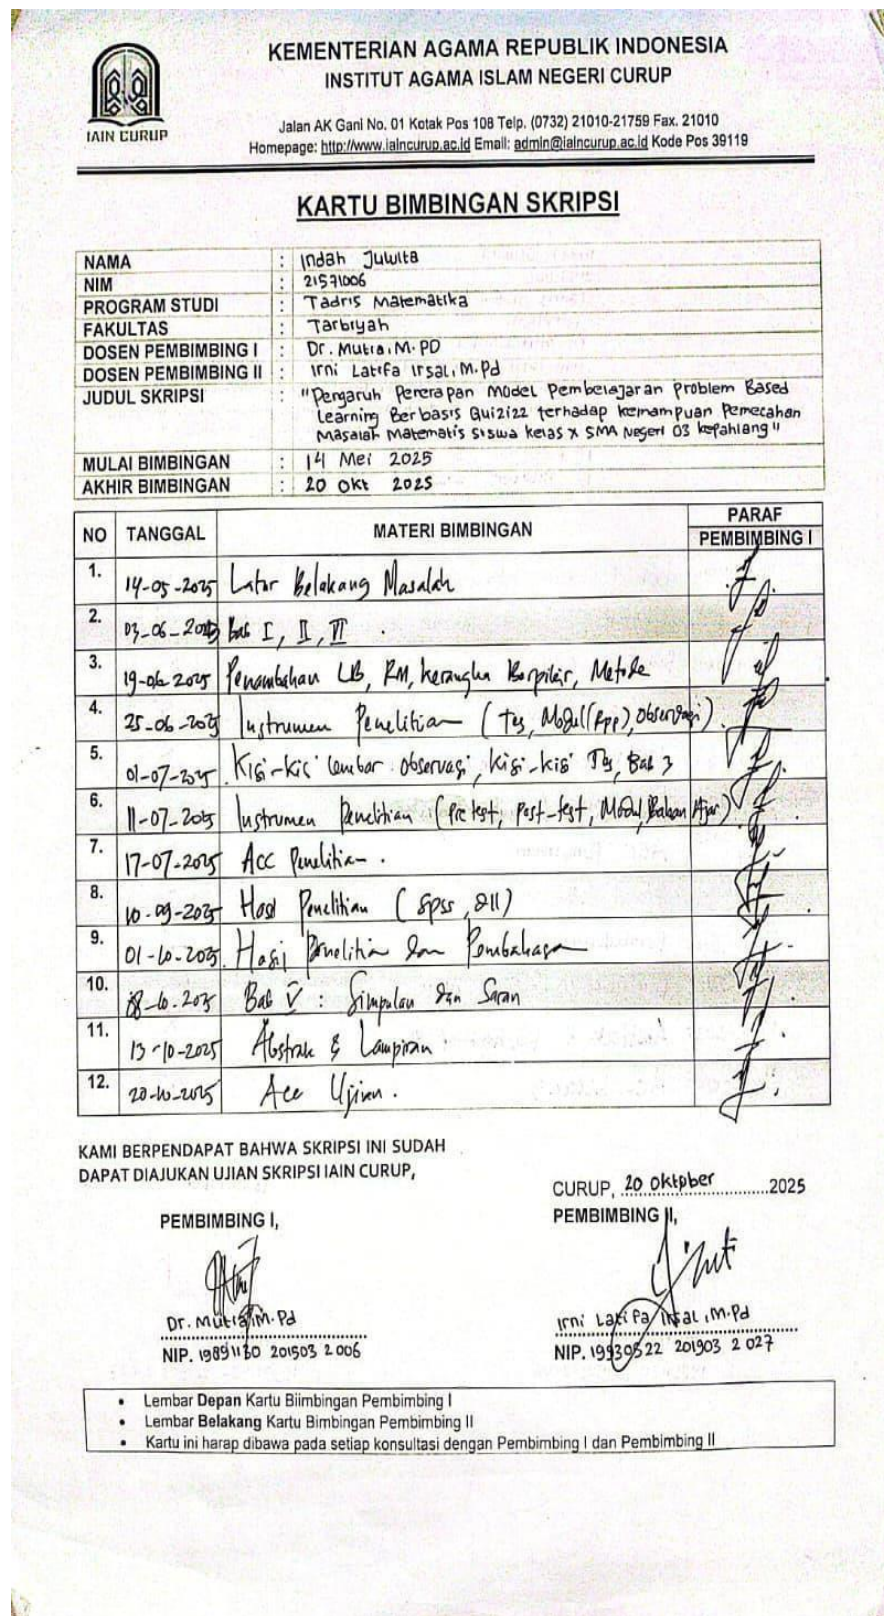 KEMENTERIAN AGAMA REPUBLIK INDONESIA
INSTITUT AGAMA ISLAM NEGERI CURUP
IAIN CURUP
Jalan AK Gani No. 01 Kotak Pos 108 Telp. (0732) 21010-21759 Fax. 21010
Homepage: http://www.iaincurup.ac.id Email: admin@iaincurup.ac.id Kode Pos 39119
KARTU BIMBINGAN SKRIPSI
NAMA : Indah Juwita
NIM : 21571006
PROGRAM STUDI : Tadris Matematika
FAKULTAS : Tarbiyah
DOSEN PEMBIMBING I : Dr. Mutia, M.PD
DOSEN PEMBIMBING II : Irni Latifa Irsal, M.Pd
JUDUL SKRIPSI : "Pengaruh Penerapan Model Pembelajaran Problem Based
Learning Berbasis Quizizz terhadap kemampuan Pemecahan
Masalah Matematis Siswa kelas X SMA Negeri 03 kepahiang"
MULAI BIMBINGAN : 14 Mei 2025
AKHIR BIMBINGAN : 20 Okt 2025
NO TANGGAL MATERI BIMBINGAN PARAF
PEMBIMBING I
1. 14-05-2025 Latar Belakang Masalah
2. 03-06-2025 Bab I, II, III
3. 19-06-2025 Penambahan LB, RM, kerangka Berpikir, Metode
4. 25-06-2025 Instrumen Penelitian (Tes, Modul (Rpp), Observasi)
5. 01-07-2025 Kisi-kisi lembar observasi, Kisi-kisi Tes, Bab 3
6. 11-07-2025 Instrumen Penelitian (Pretest, post-test, Modul, Bahan Ajar)
7. 17-07-2025 Acc Penelitian.
8. 10-09-2025 Hasil Penelitian (spss, dll)
9. 01-10-2025 Hasil Penelitian dan Pembahasan
10. 08-10-2025 Bab V : Simpulan dan Saran
11. 13-10-2025 Abstrak & Lampiran
12. 20-10-2025 Acc Ujian.
KAMI BERPENDAPAT BAHWA SKRIPSI INI SUDAH
DAPAT DIAJUKAN UJIAN SKRIPSI IAIN CURUP,
CURUP, 20 Oktober 2025
PEMBIMBING I,
PEMBIMBING II,
Dr. Mutia, M.Pd
Irni Latifa Irsal, M.Pd
NIP. 19891130 201503 2 006
NIP. 19930522 201903 2 027
• Lembar Depan Kartu Biimbingan Pembimbing I
• Lembar Belakang Kartu Bimbingan Pembimbing II
• Kartu ini harap dibawa pada setiap konsultasi dengan Pembimbing I dan Pembimbing II